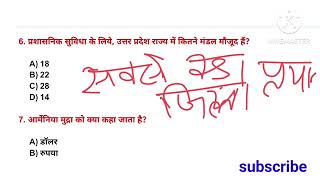 KINEMASTER
6. प्रशासनिक सुविधा के लिये, उत्तर प्रदेश राज्य में कितने मंडल मौजूद हैं?
A) 18
B) 22
C) 28
D) 14
सबसे बड़ा
जिला
7. आर्मेनिया मुद्रा को क्या कहा जाता है?
A) डॉलर
B) रुपया
subscribe